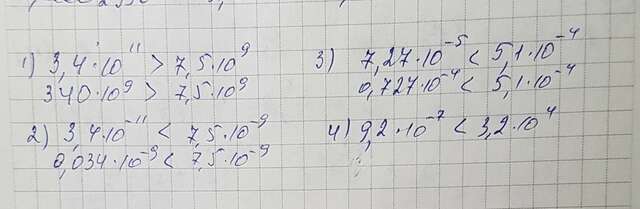 1) 3,4·10¹¹ > 7,5·10⁹
340·10⁹ > 7,5·10⁹
2) 3,4·10⁻¹¹ < 7,5·10⁻⁹
0,034·10⁻⁹ < 7,5·10⁻⁹
3) 7,27·10⁻⁵ < 5,1·10⁻⁴
0,727·10⁻⁴ < 5,1·10⁻⁴
4) 9,2·10⁻⁷ < 3,2·10⁴